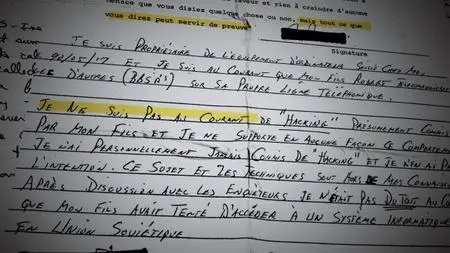 faveur et rien à craindre d'aucune
menace que vous disiez quelque chose ou non, mais tout ce que
vous direz peut servir de preuve
Signature
JE SUIS PROPRIÉTAIRE DE L'ÉQUIPEMENT D'ORDINATEUR SAISIE CHEZ MOI,
CE JE SUIS AU COURANT QUE MON FILS ROBERT
D'AUTRES (BBS's) SUR SA PROPRE LIGNE TÉLÉPHONIQUE.
JE NE SUIS PAS AU COURANT DE "HACKING" PRÉSUMÉMENT COMMIS
PAR MON FILS ET JE NE SUPPORTE EN AUCUNE FAÇON CE COMPORTEME
JE N'AI PERSONNELLEMENT JAMAIS COMMIS DE "HACKING" ET JE N'EN AI PA
L'INTENTION. CE SUJET ET LES TECHNIQUES SONT HORS DE MES CONNAISSA
APRÈS DISCUSSION AVEC LES ENQUÊTEURS JE N'ÉTAIT PAS DU TOUT AU CO
QUE MON FILS AVAIT TENTÉ D'ACCÉDER À UN SYSTÈME INFORMATIQUE
EN UNION SOVIÉTIQUE